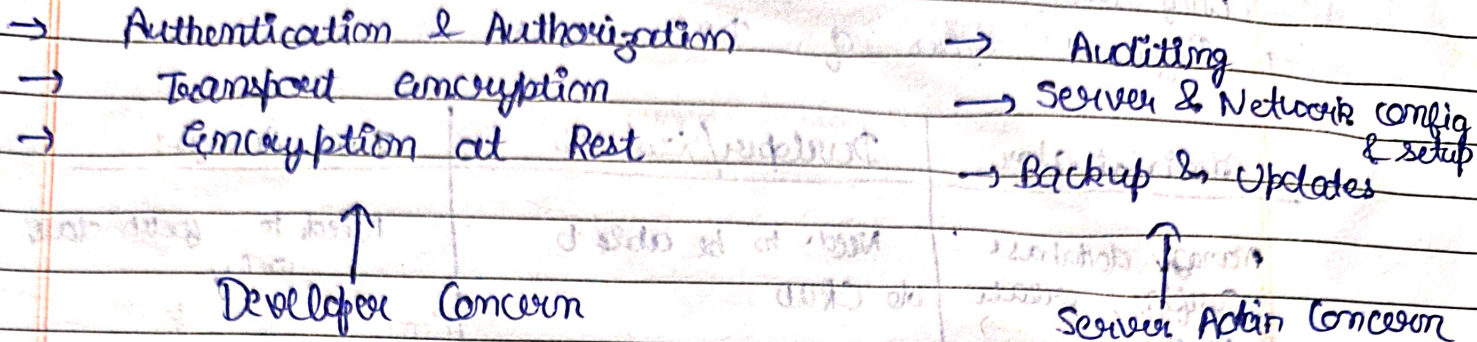 → Authentication & Authorization
→ Transport encryption
→ Encryption at Rest
↑
Developer Concern
→ Auditing
→ Server & Network config
& setup
→ Backup & Updates
↑
Server Admin Concern